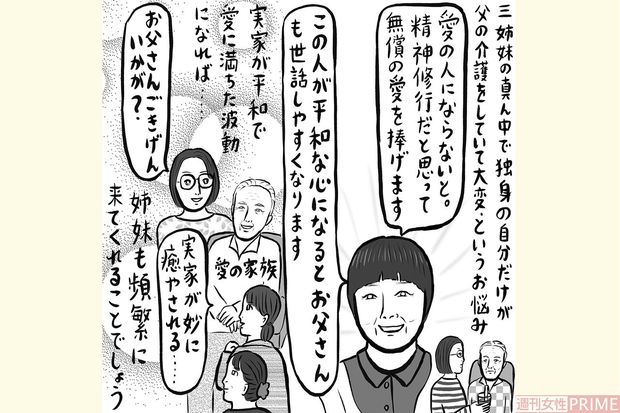 三姉妹の真ん中で独身の自分だけが
父の介護をしていて大変、というお悩み
愛の人にならないと。
精神修行だと思って
無償の愛を捧げます
この人が平和な心になるとお父さん
も世話しやすくなります
実家が平和で
愛に満ちた波動
になれば……
お父さんごきげん
いかが？
愛の家族
実家が妙に
癒やされる……
姉妹も頻繁に
来てくれることでしょう
週刊女性PRIME